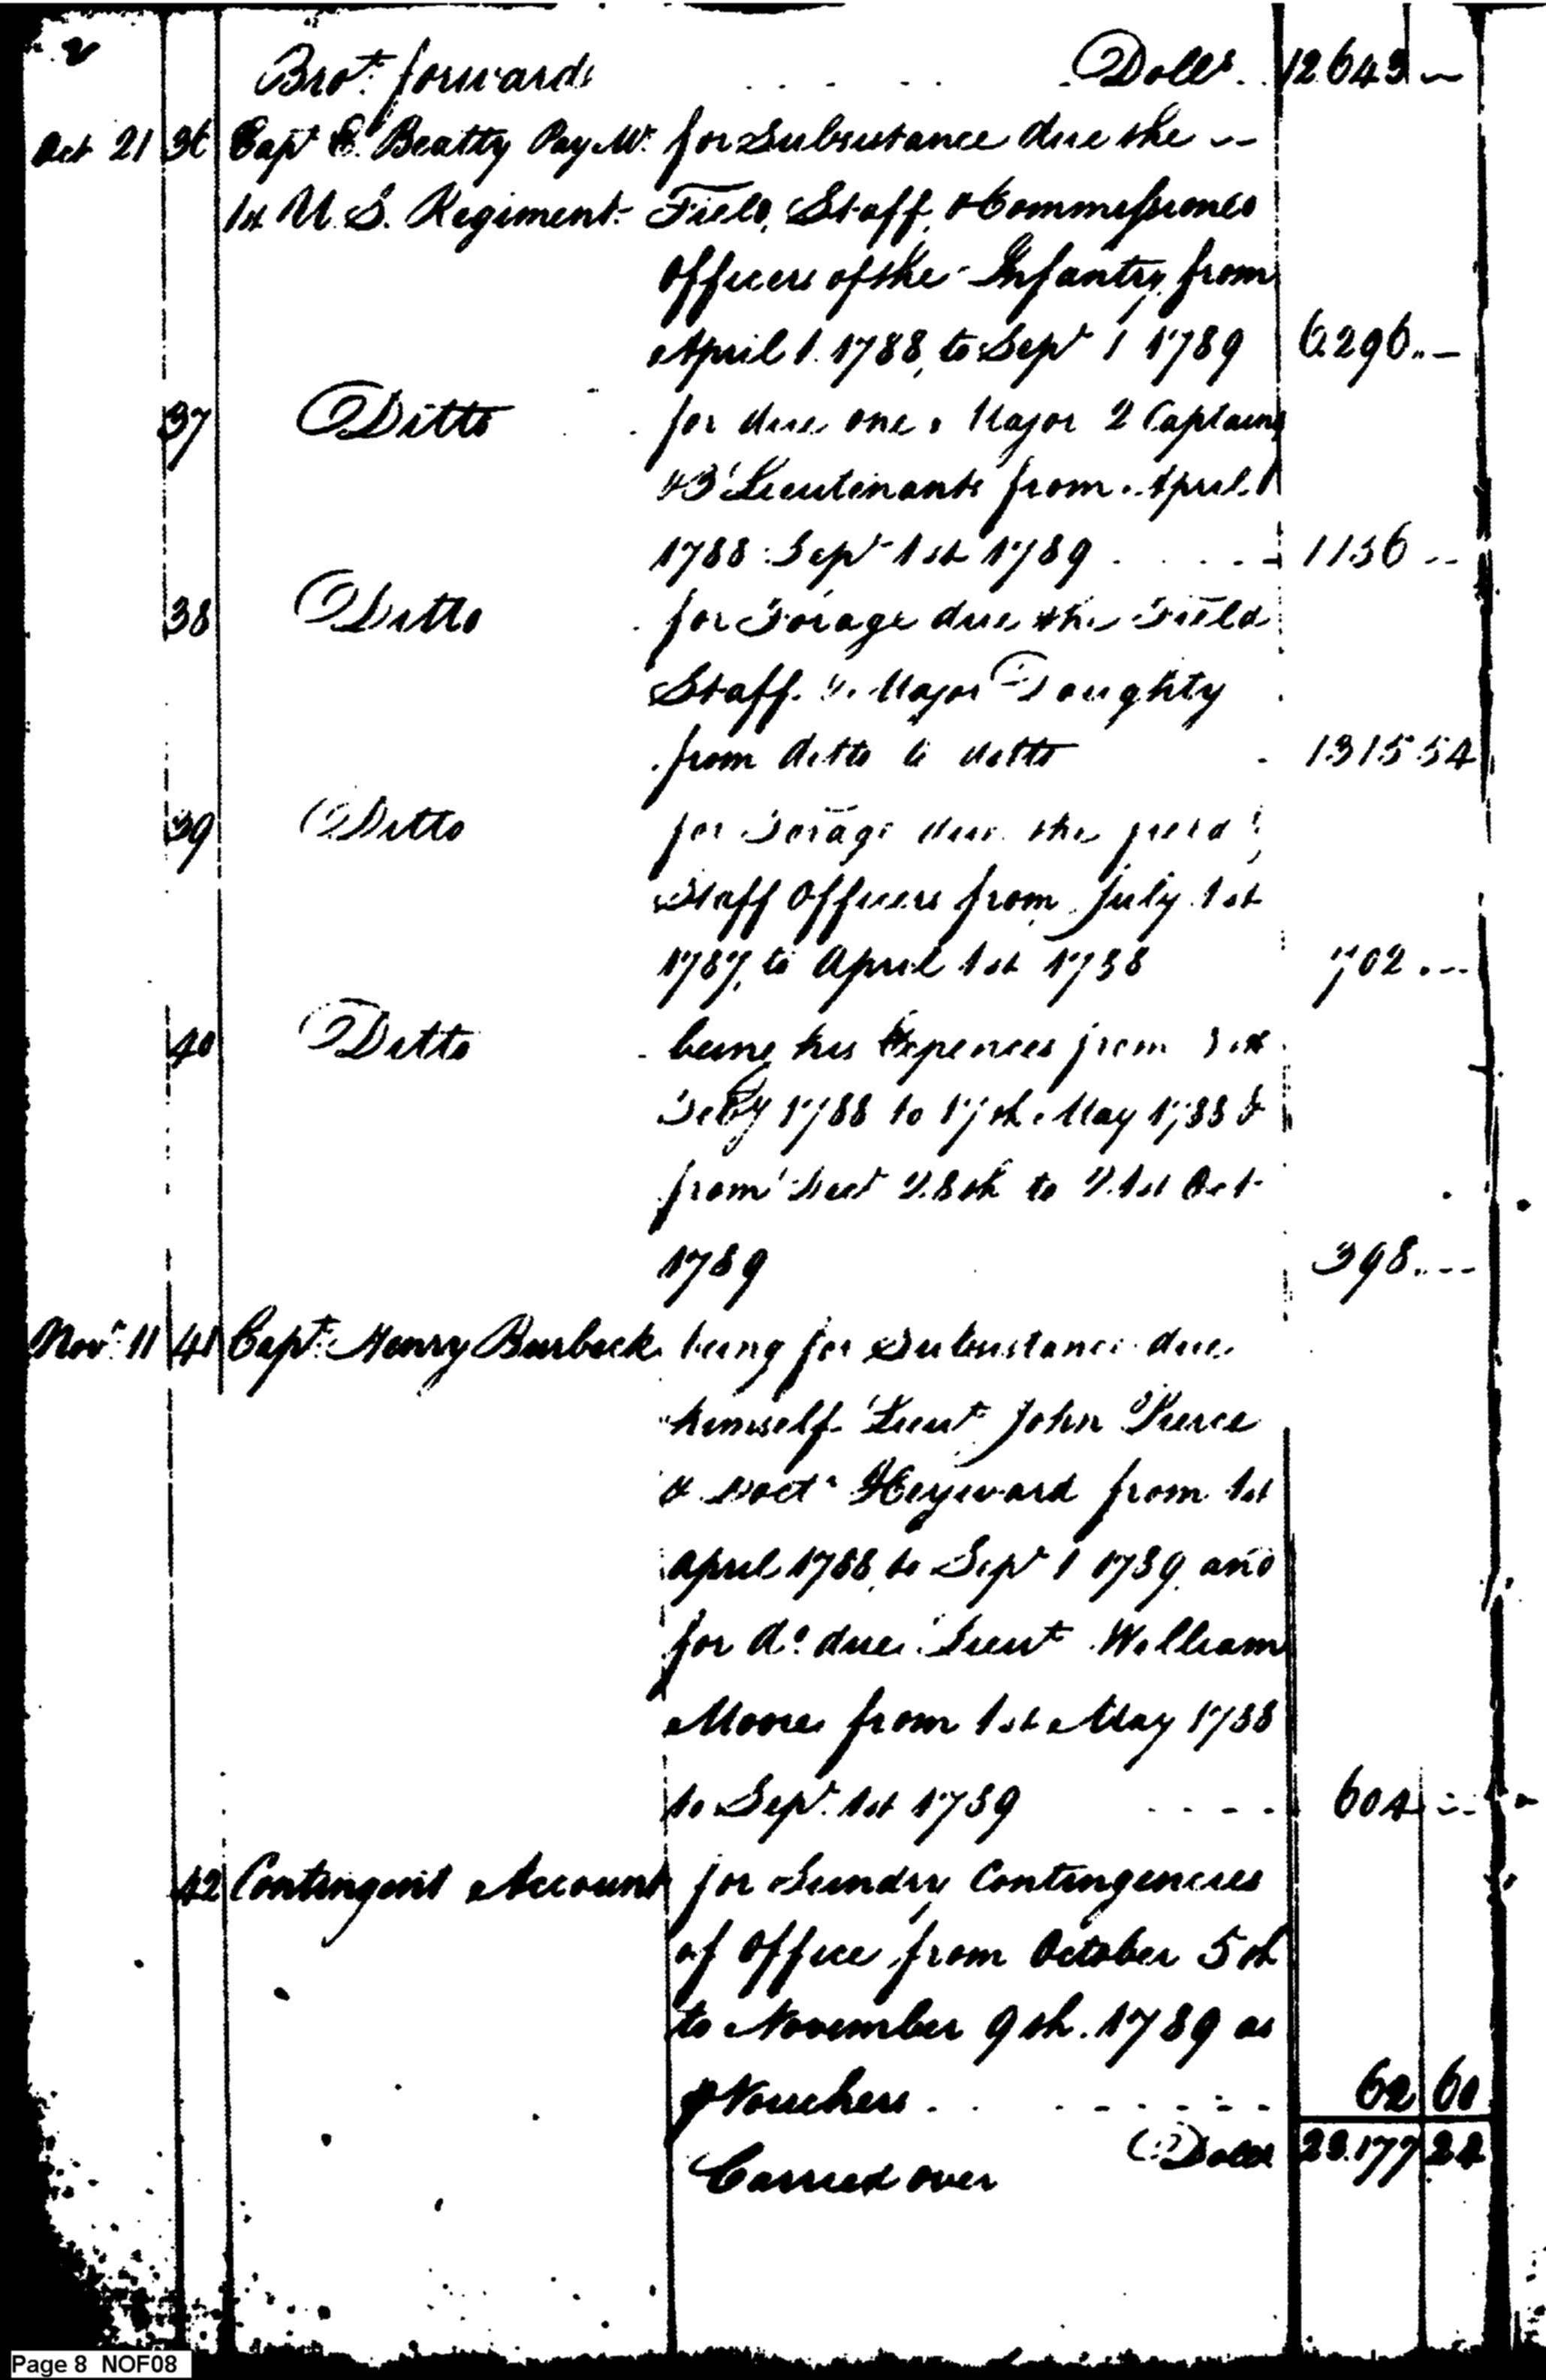 2
Brot. forward Dolls. 12643
Oct 21 36 Capt E. Beatty Pay Mr. for Subsistance due the
1st U.S. Regiment Field, Staff, & Commissioned
Officers of the Infantry, from
April 1. 1788, to Sept 1 1789 6296
37 Ditto for due one Major 2 Captains
& 3 Lieutenants from April 1
1788 Sept 1st 1789 1156
38 Ditto for Forage due the Field
Staff & Major Doughty
from ditto to ditto 1315 54
39 Ditto for Forage due the field
Staff Officers from July 1st
1787, to April 1st 1788 702
40 Ditto being his Expences from
Feby 1788 to 17th May 1788 &
from 28th to 21st Oct
1789 398
Novr. 11 41 Capt. Henry Burbeck being for Subsistance due
himself Lieut John Pierce
& Doctr Heyward from 1st
April 1788, to Sept 1 1789, and
for do. due Lieut William
Moore from 1st May 1788
to Sept. 1st 1789 604
42 Contingent Account for Sundry Contingencies
of Office from October 5th
to November 9th. 1789 as
⅌ Vouchers 62 60
Carried over Dolls 23.177 24
Page 8 NOF08